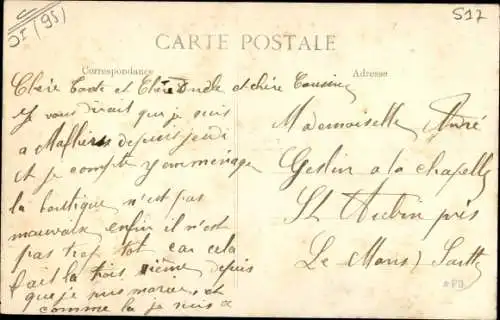 OI (95)
S17
CARTE POSTALE
Correspondance
Adresse
Chère Tante et Chère Oncle et chère Cousine
Je vous dirait que je suis
a depuis jeudi
et je compte y emménager
la boutique n'est pas
mauvaise enfin il n'est
pas trop tot car cela
fait la trois sième depuis
que je suis mariée et
comme la je suis a
Mademoiselle André
Geslin a la chapelle
St Aubin près
Le Mans Sarthe